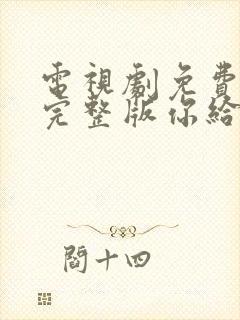 電視劇免費
完整版你給
閻十四